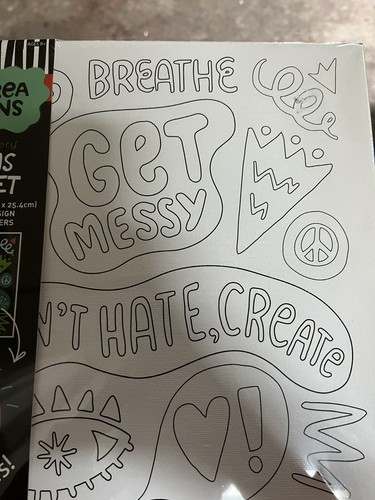 AGES 8+
REA
NS
AS
ET
x 25.4cm)
SIGN
ERS
BREATHE
GET
MESSY
N'T HATE, CREATE
!
S!